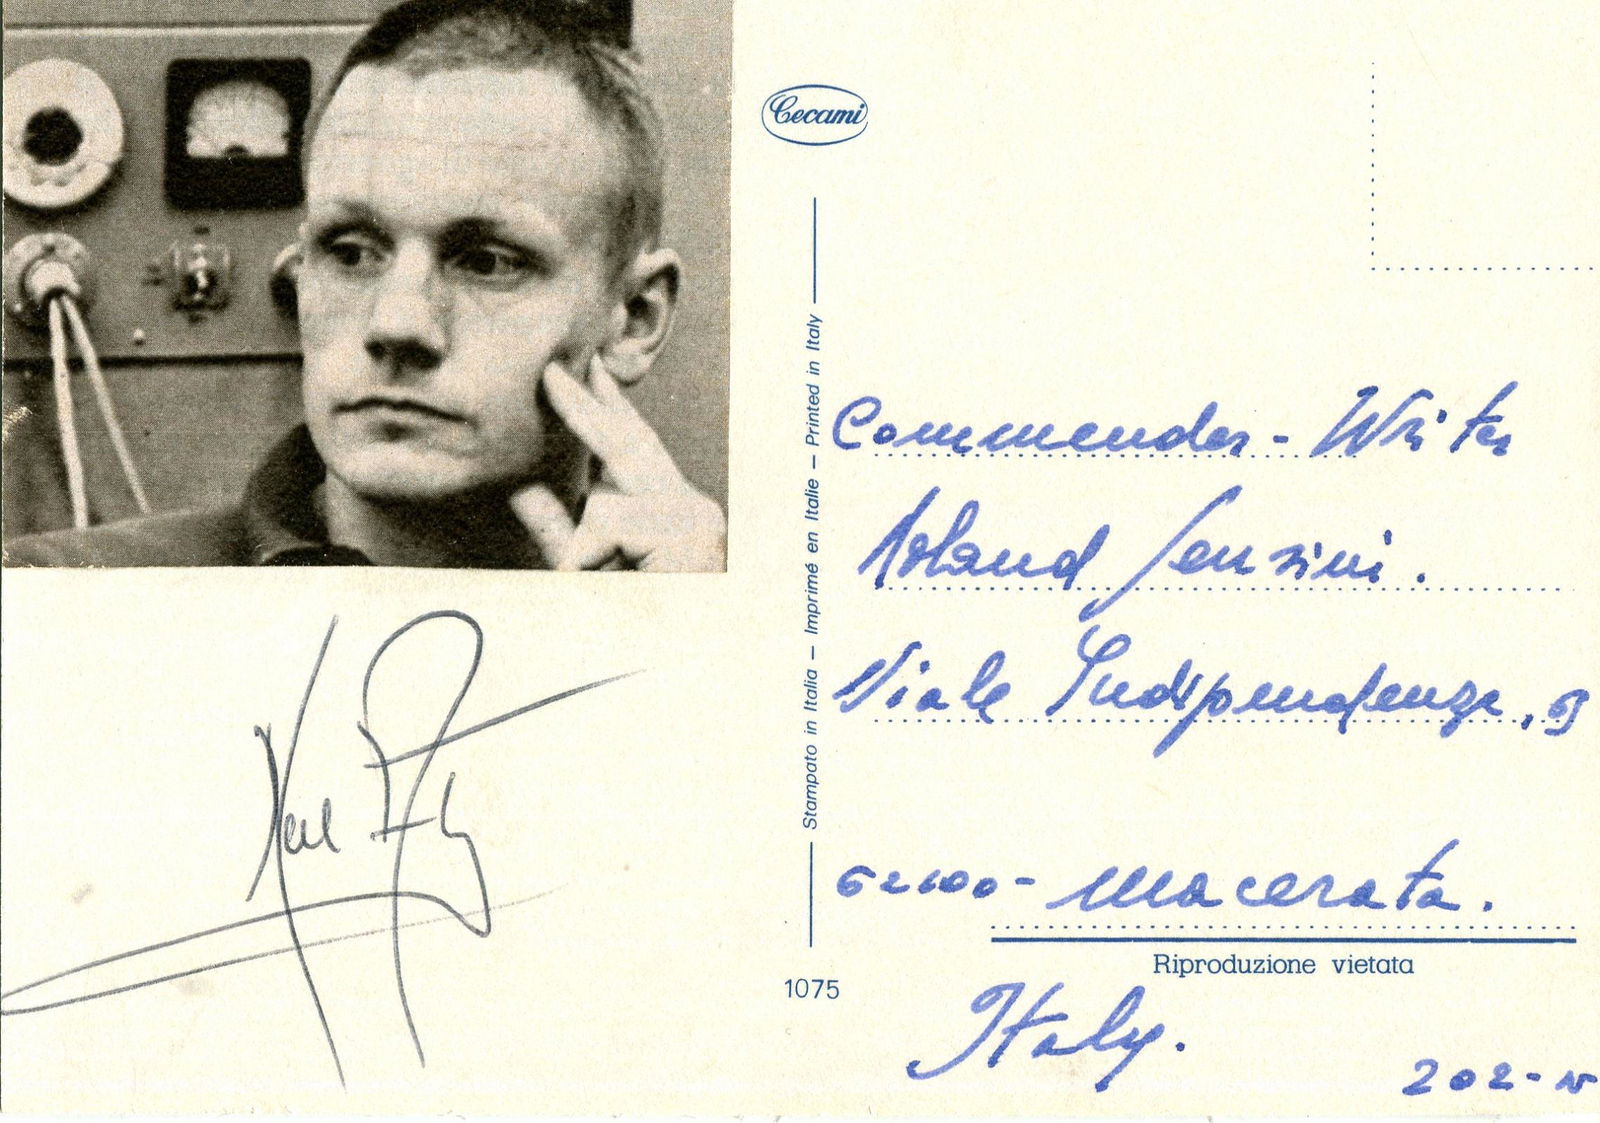 Cecami
Stampato in Italia – Imprimé en Italie – Printed in Italy
Commender - Writer
Roland
Viale Indipendenza,
62100 - Macerata.
Riproduzione vietata
1075
Italy.
202-
Neil